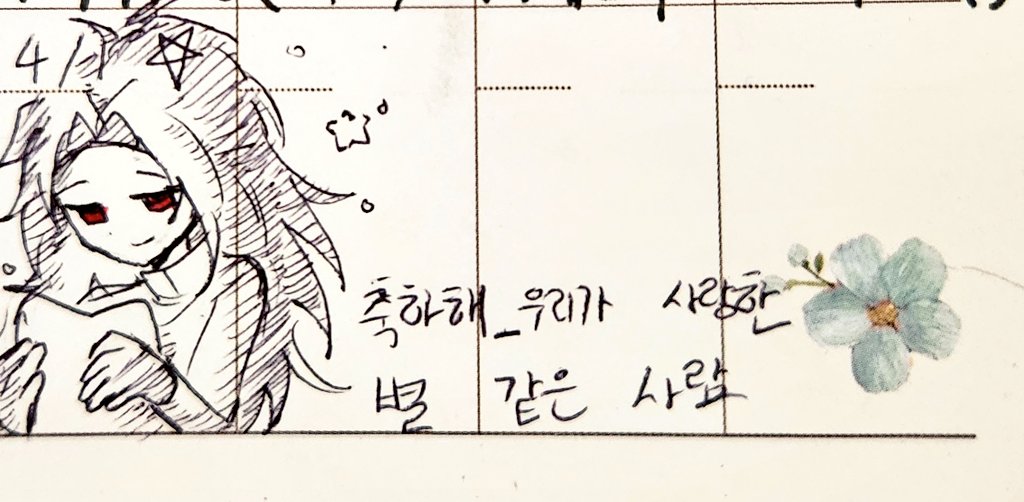 4/1
축하해_우리가 사랑한
별 같은 사람